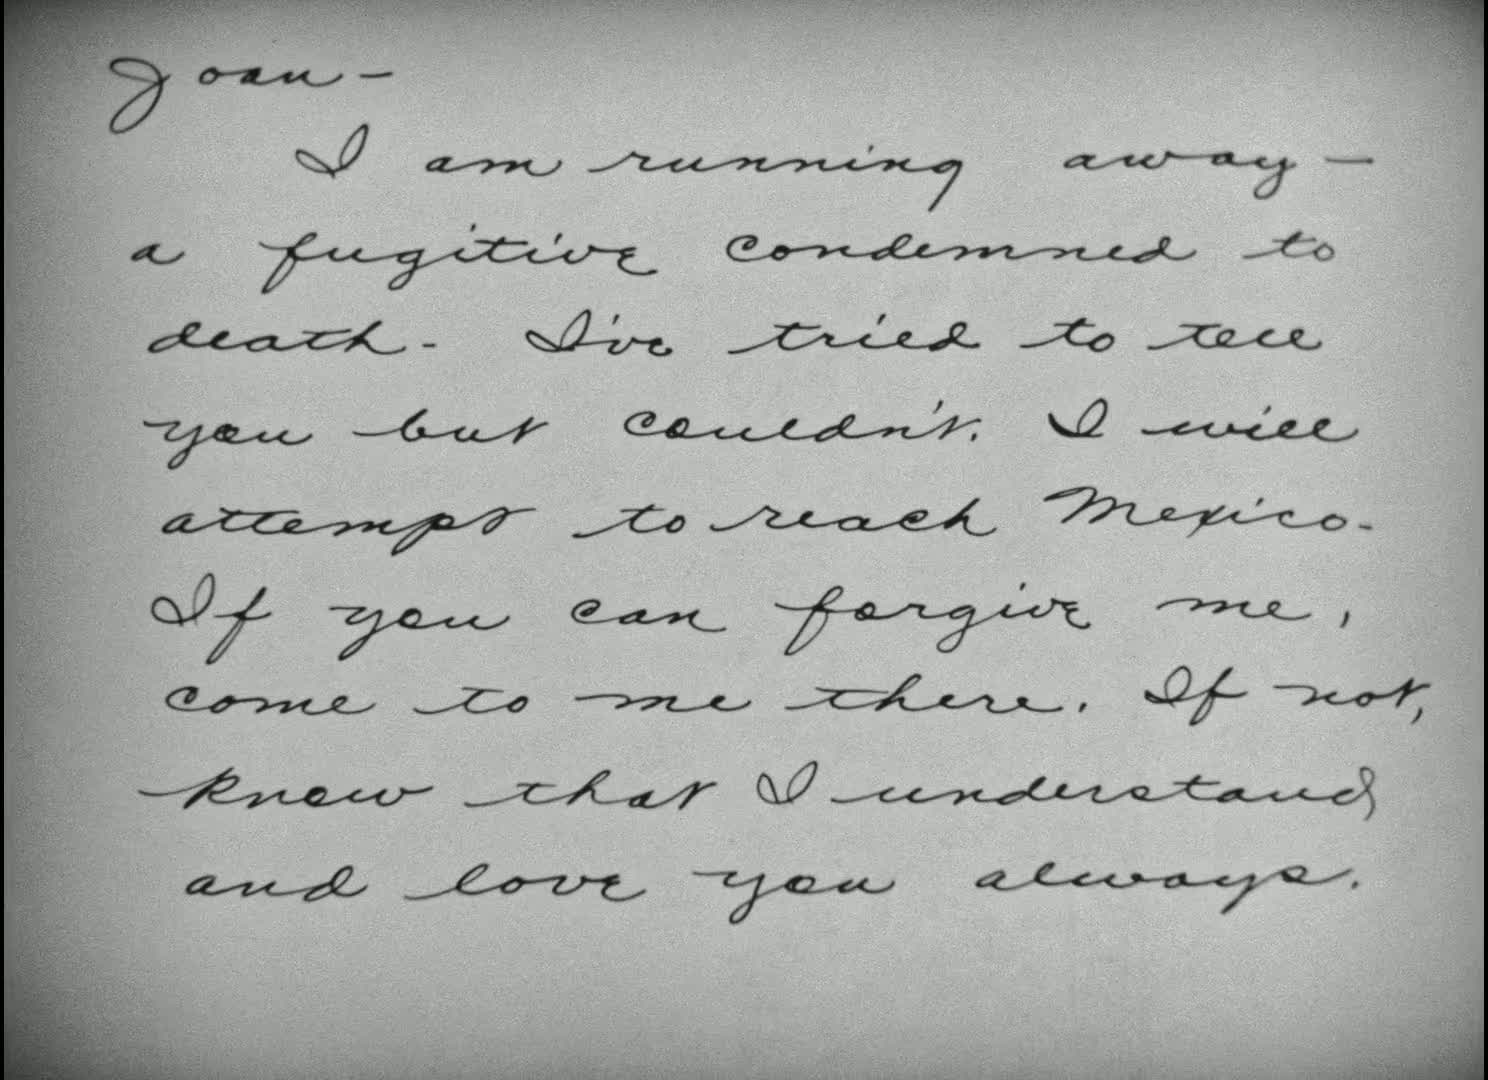 Joan —
I am running away —
a fugitive condemned to
death - I've tried to tell
you but couldn't. I will
attempt to reach Mexico.
If you can forgive me,
come to me there. If not,
know that I understand
and love you always.